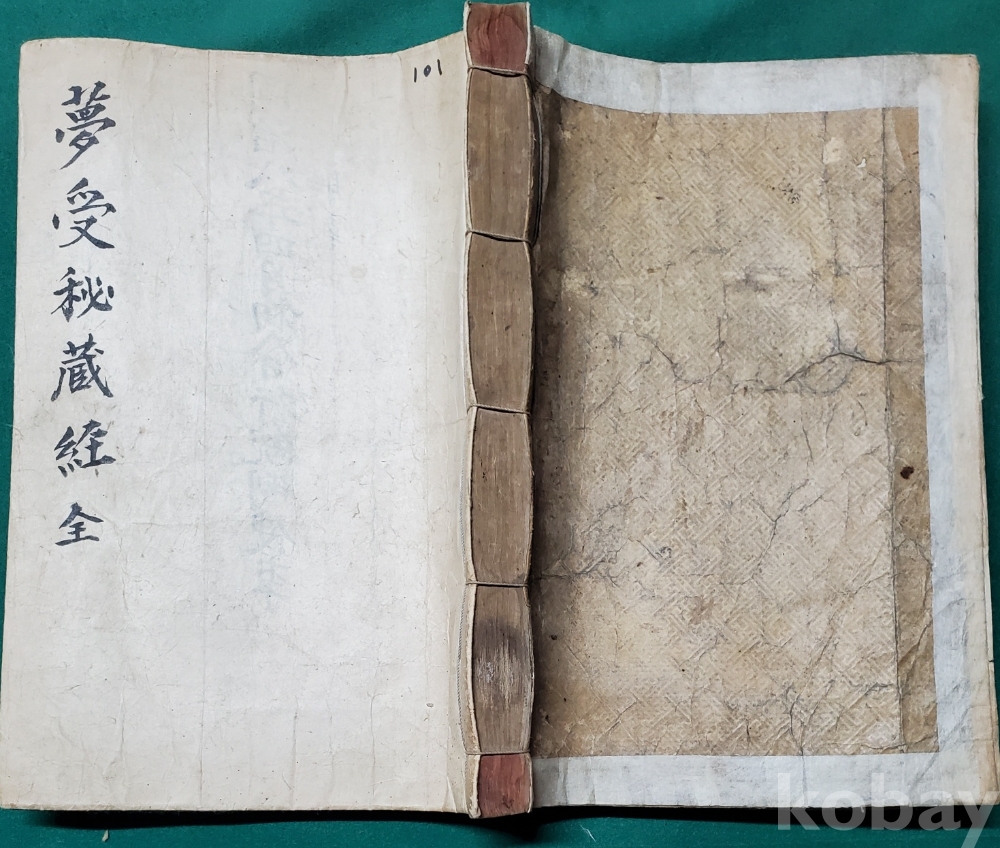 夢受秘蔵経全
101
kobay